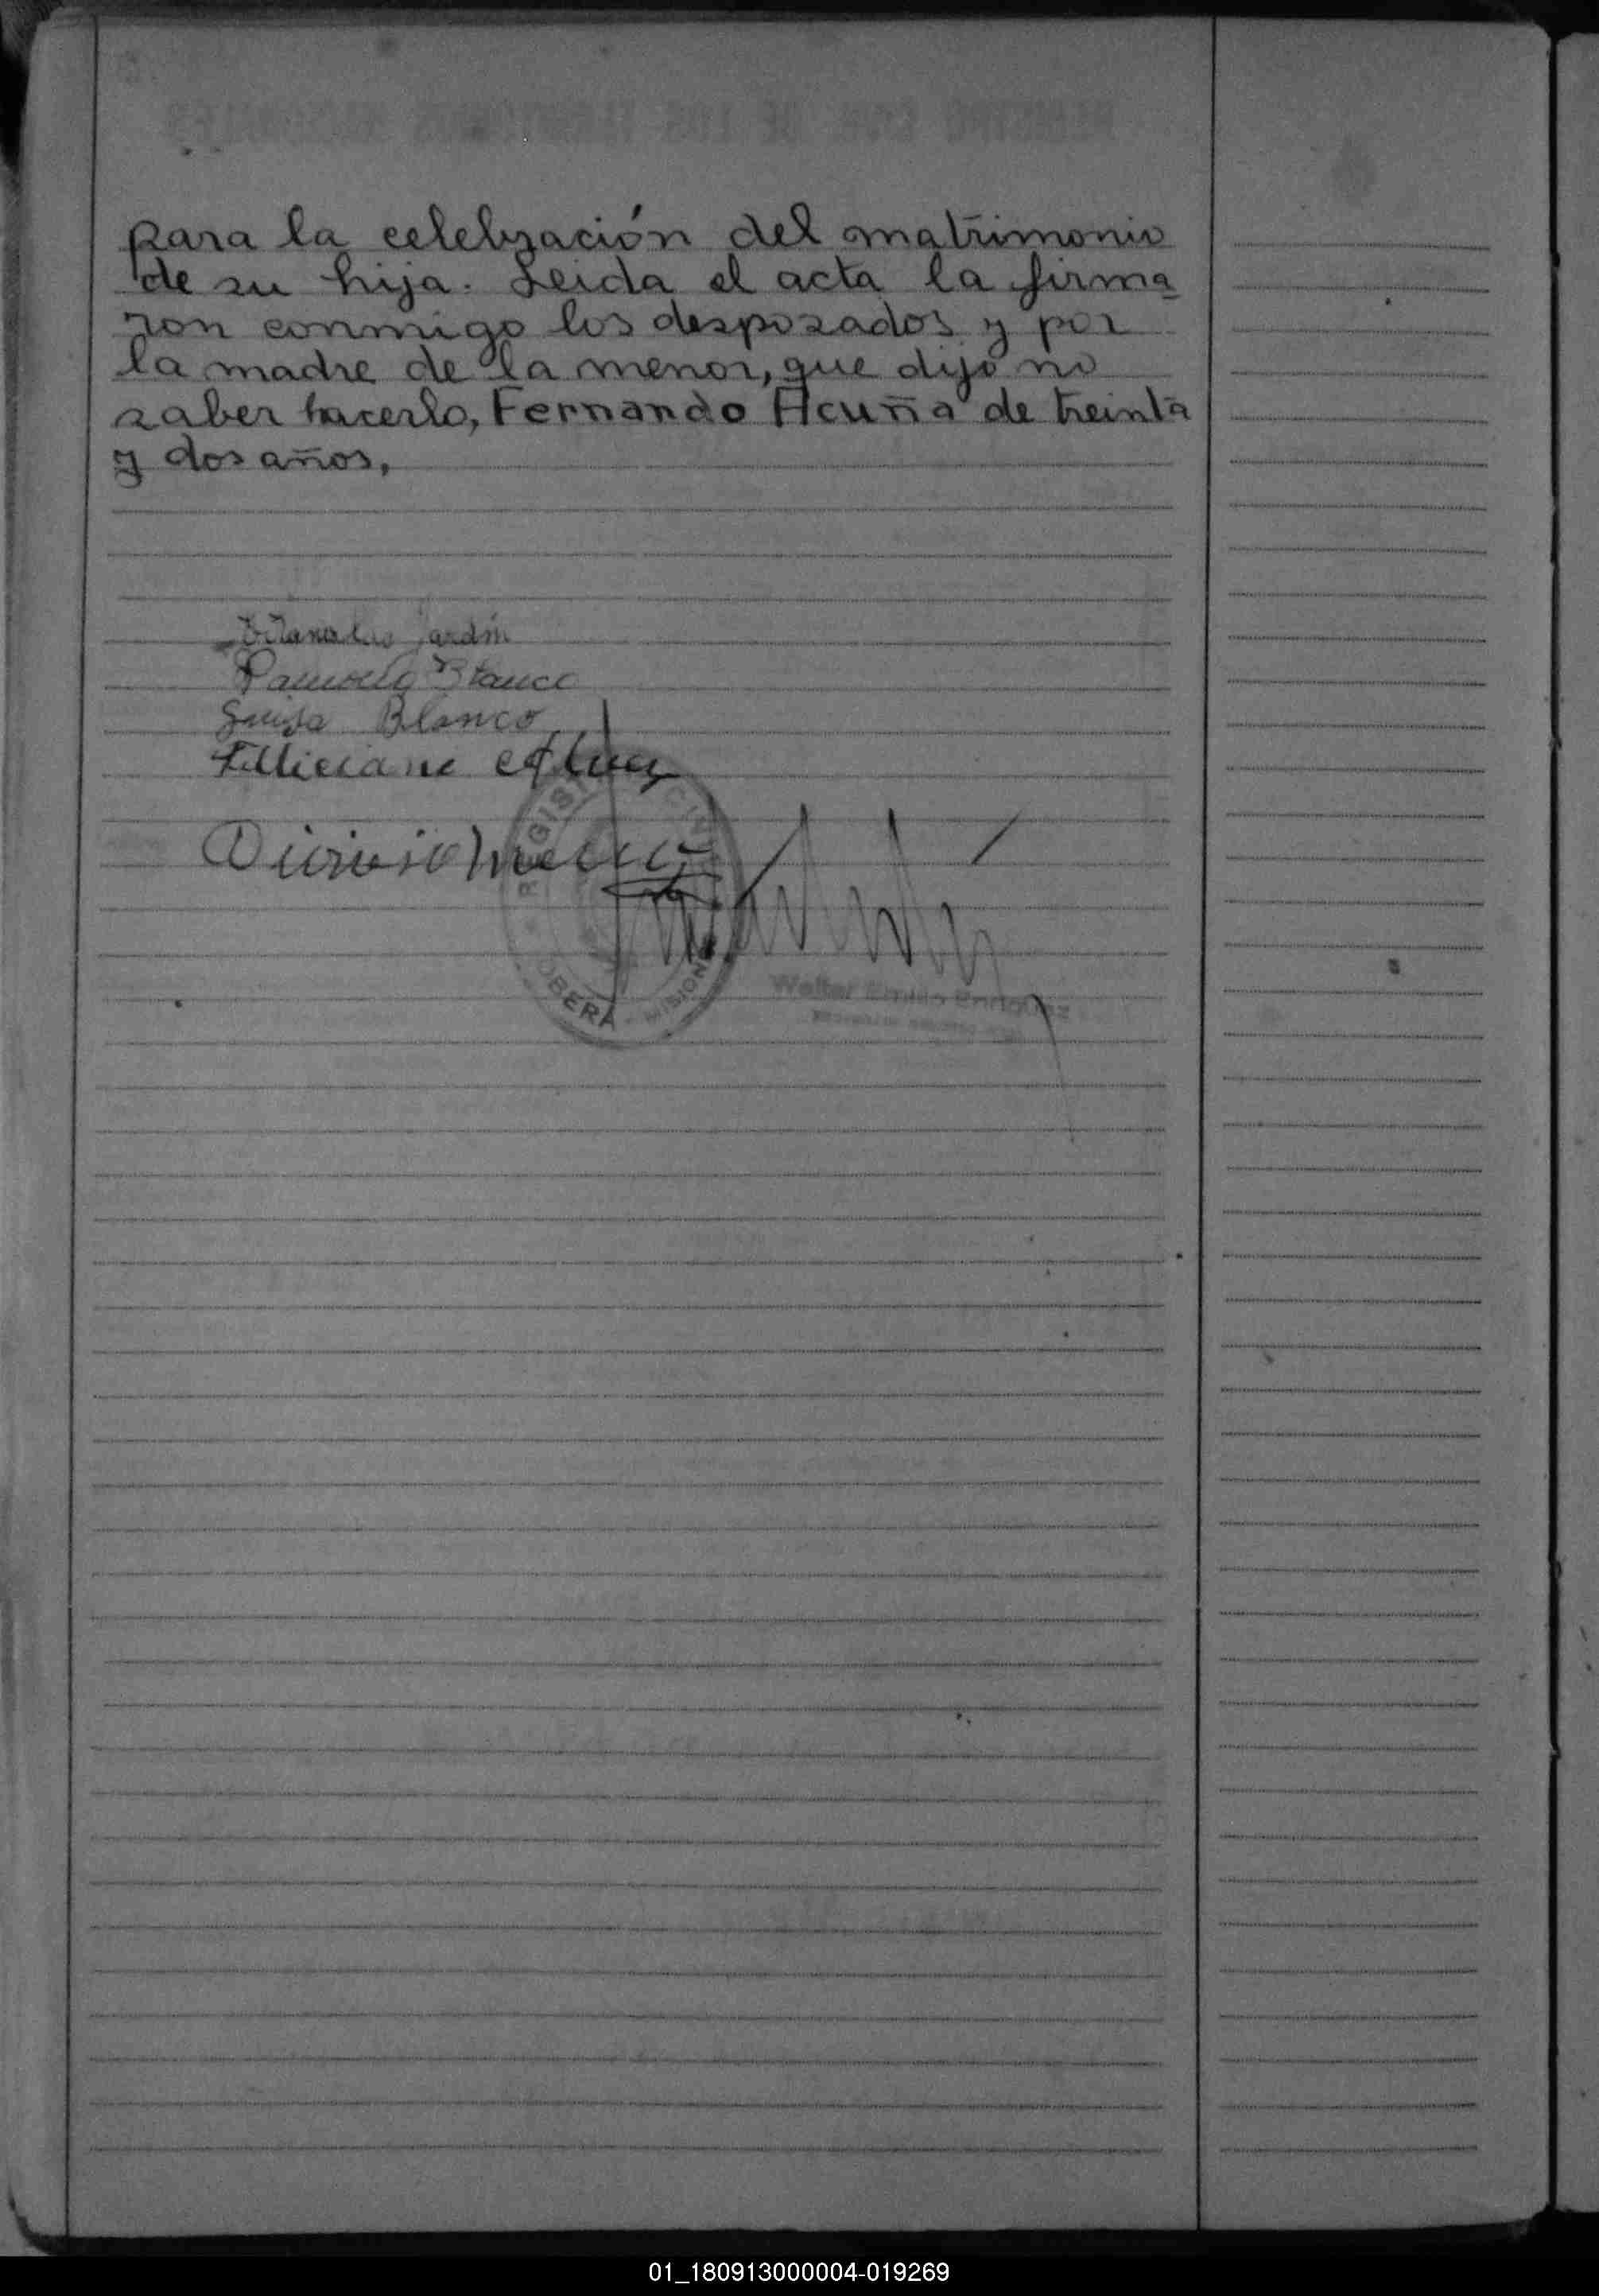 para la celebración del matrimonio
de su hija. Leida el acta la firma
ron conmigo los desposados y por
la madre de la menor, que dijo no
saber hacerlo, Fernando Acuña de treinta
y dos años,
Jardin
Blanco
Luisa Blanco
REGISTRO CIVIL
OBERÁ - MISIONES
Walter Emilio
01_180913000004-019269